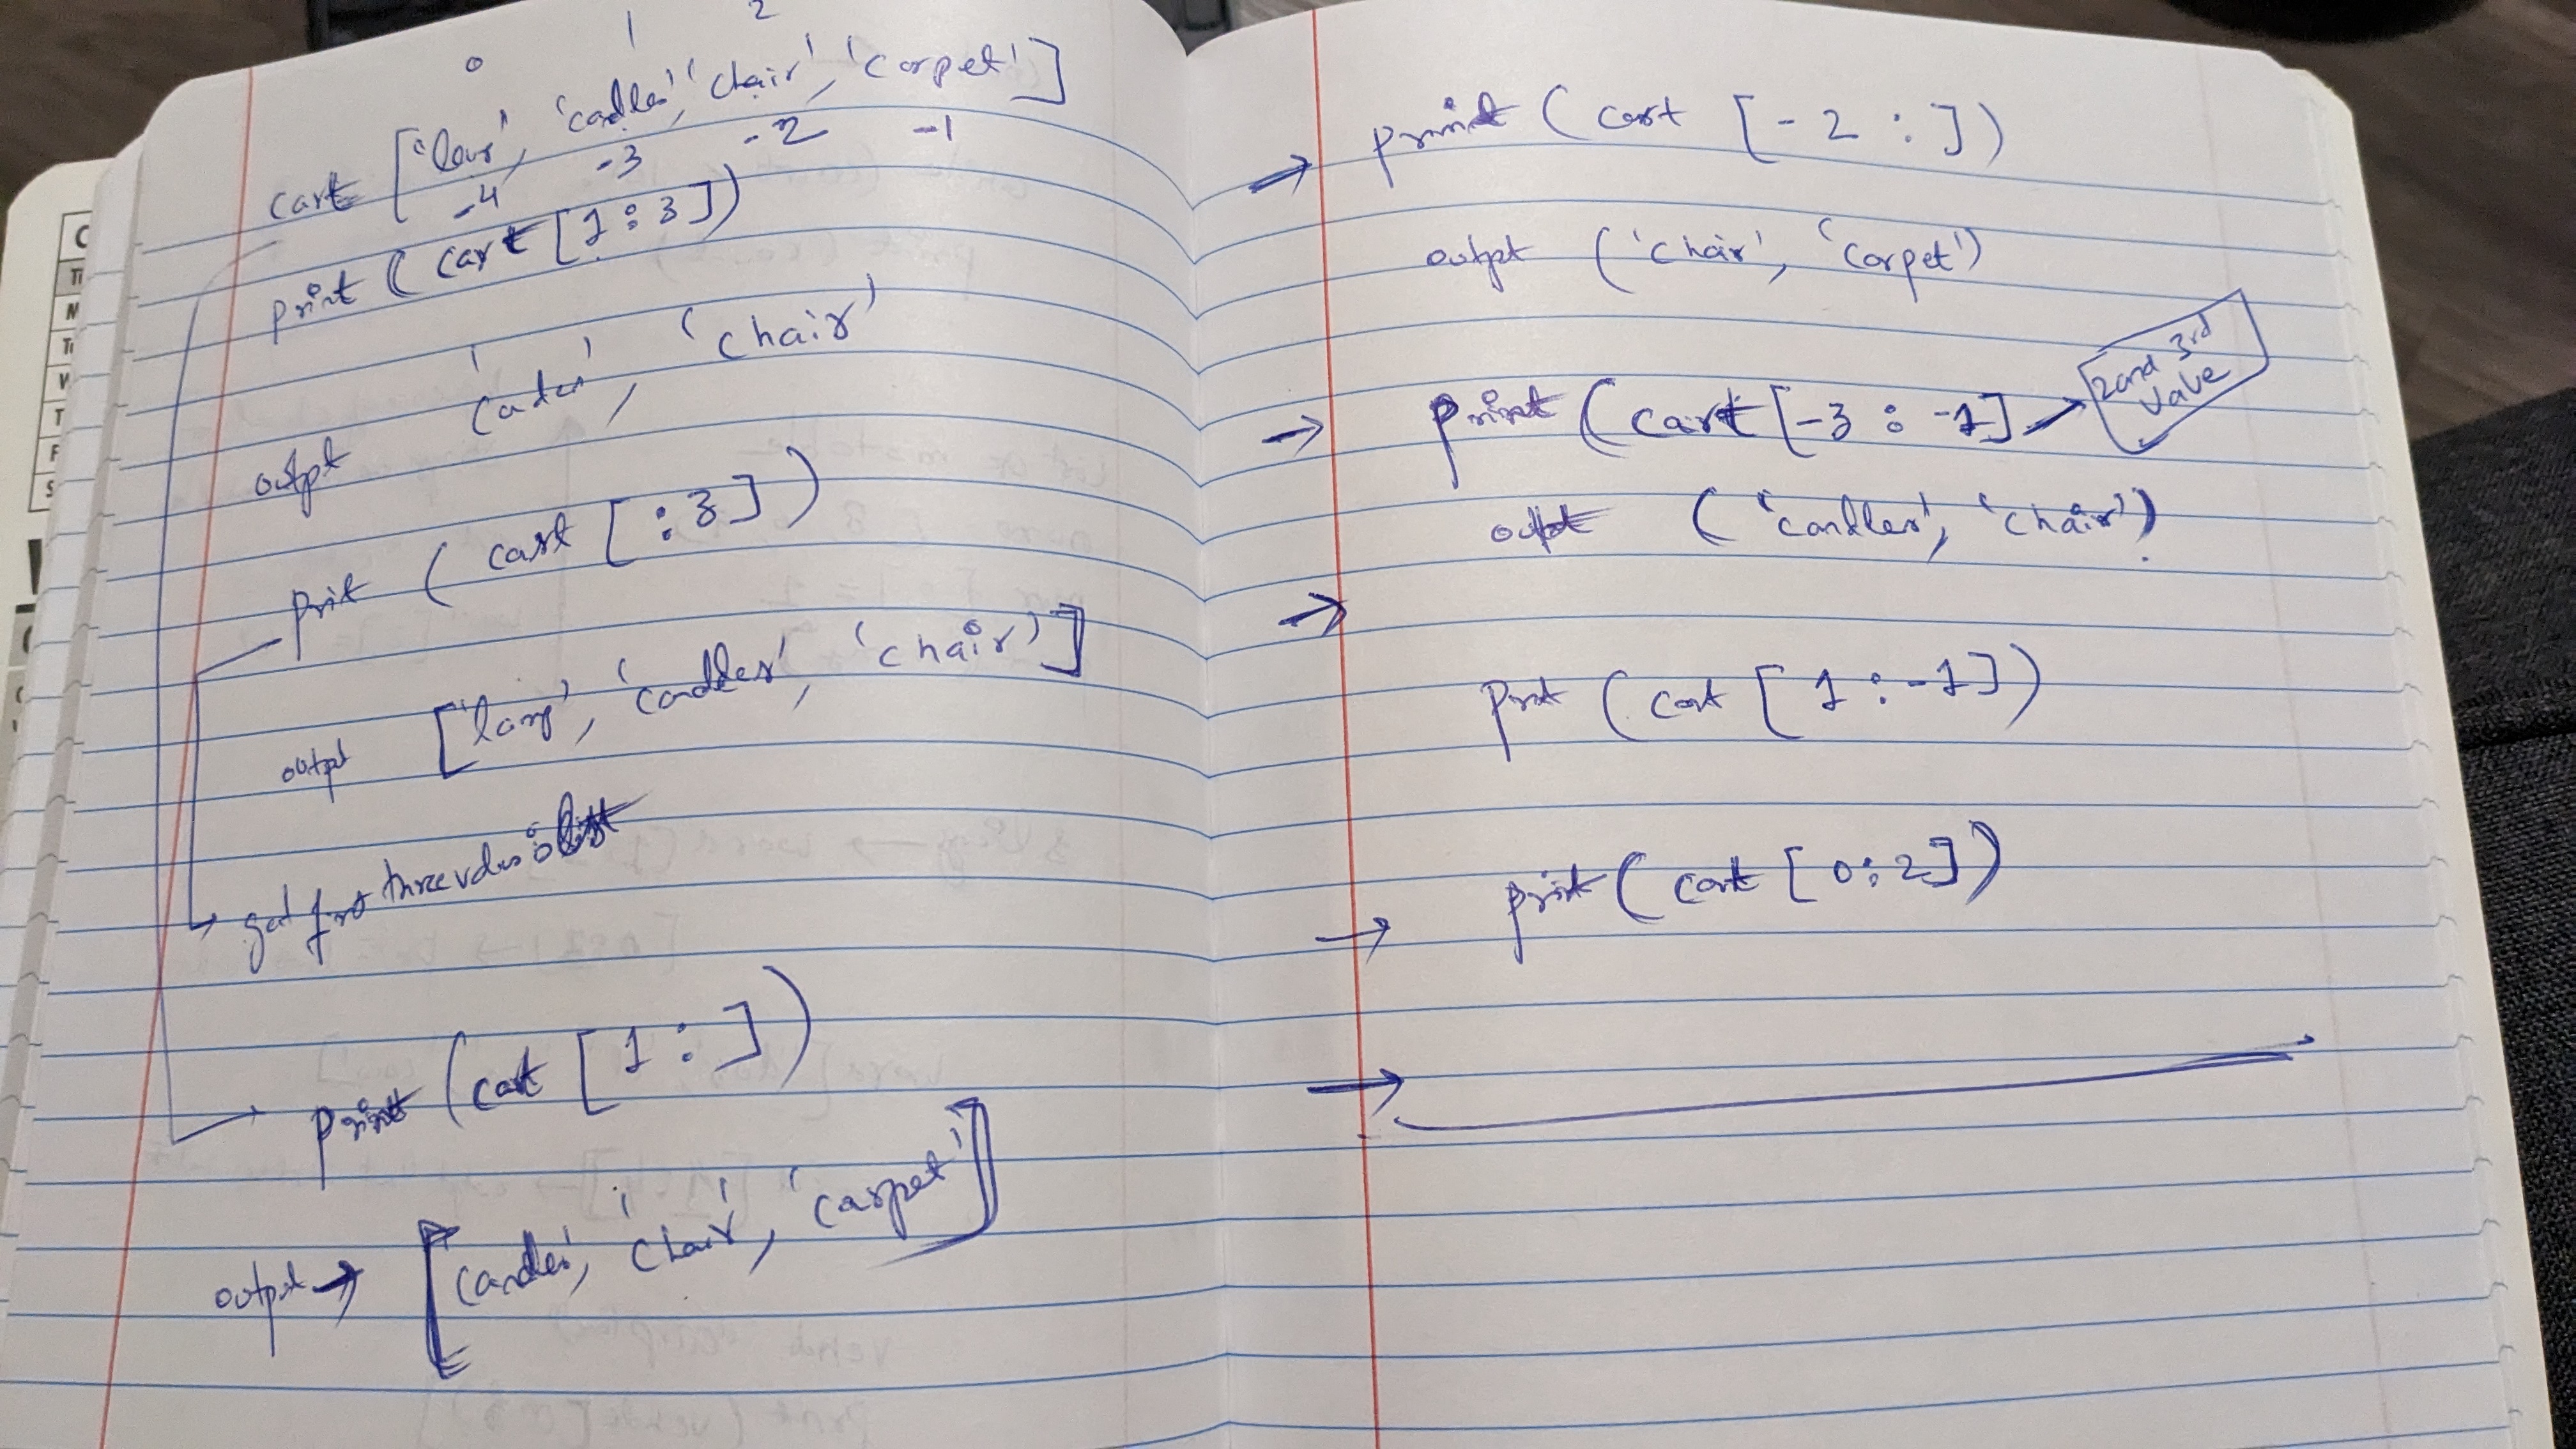 0 1 2
cart ['lamp', 'candles', 'chair', 'carpet']
-4 -3 -2 -1
print (cart [1:3])
output 'candles', 'chair'
print (cart [:3])
output ['lamp', 'candles', 'chair']
get first three values of list
print (cart [1:])
output → ['candles', 'chair', 'carpet']
→ print (cart [-2:])
output ('chair', 'carpet')
→ print (cart [-3:-1] → 2nd 3rd
value
output ('candles', 'chair')
→
print (cart [1:-1])
→ print (cart [0:2])
→